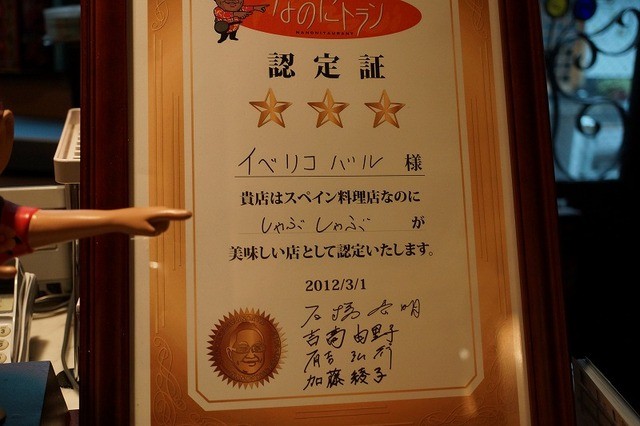 なのにトラン
NANONITAURANT
認定証
イベリコ バル 様
貴店はスペイン料理店なのに
しゃぶしゃぶ が
美味しい店として認定いたします。
2012/3/1
石橋 貴明
吉南 由里子
有吉 弘行
加藤 綾子